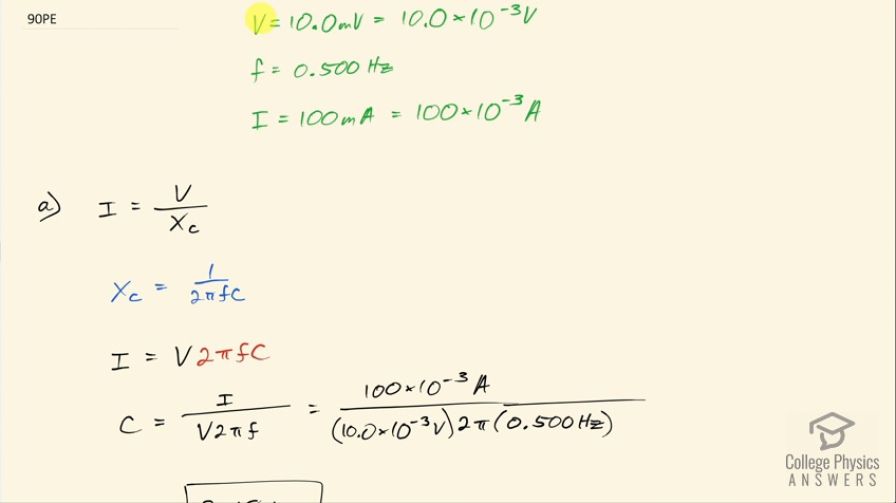 90PE
V = 10.0mV = 10.0×10⁻³V
f = 0.500 Hz
I = 100mA = 100×10⁻³ A
a) I = V / Xc
Xc = 1 / 2πfC
I = V2πfC
C = I / V2πf = 100×10⁻³ A / (10.0×10⁻³V)2π(0.500Hz)
College Physics
ANSWERS